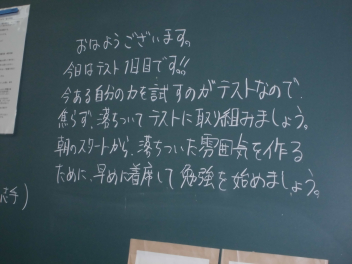 おはようございます。
今日はテスト1日目です!!
今ある自分の力を試すのがテストなので、
焦らず、落ちついてテストに取り組みましょう。
朝のスタートから、落ちついた雰囲気を作る
ために、早めに着席して勉強を始めましょう。